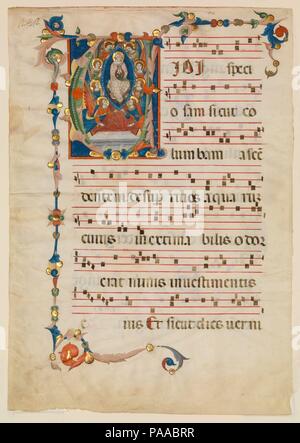 IDI speci
osam sicut co
lumbam ascen
dentem desup riuos aquarum
cuius inextima bilis odor
erat nimis in uestimentis
eius Et sicut dies uerni
alamy
Image ID: PAABRR
www.alamy.com